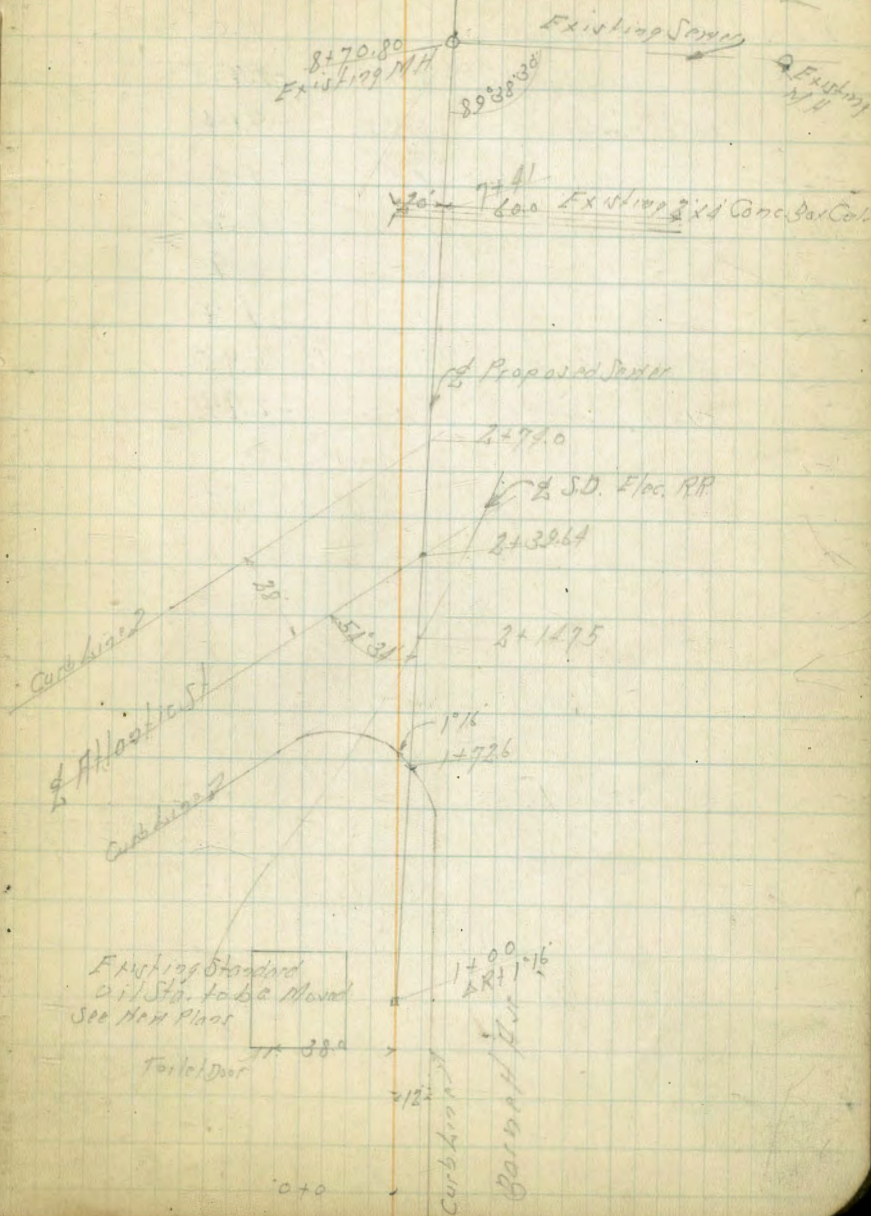 Existing Sewer
8+70.80
Existing MH
89°38'30"
Existing
MH
7+41
20
60.0 Existing 2'x4' Conc. Box Cul.
℄ Proposed Sewer
2+74.0
℄ S.D. Elec. RR
2+39.64
38
54°34'
2+14.75
Curb Line
℄ Atlantic St
1°16'
1+72.6
Curb Line
Existing Standard
Oil Sta. to be Moved
See New Plans
1+00
ΔRt 1°16'
38.0
Toilet Door
12
Curb Line
Barnett Av
0+0